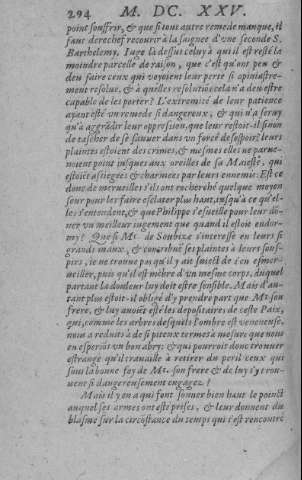 294 M. DC. XXV.
point souffrir, & que si tout autre remede manque, il
faut derechef recourir à la saignee d'vne seconde S.
Barthelemy. Iuge là dessus celuy à qui il est resté la
moindre parcelle de raison, que c'est qu'ont peu &
deu faire ceux qui voyoient leur perte si opiniastre-
ment resoluë, & à quelles resolutiõs cela n'a deu estre
capable de les porter? L'extremité de leur patience
ayant esté vn remede si dangereux, & qui n'a seruy
qu'à aggrauer leur oppression, que leur restoit-il sinon
de tascher de se sauuer dans vn forcé desespoir? leurs
plaintes estoient des crimes, & mesmes elles ne parue-
noient point iusques aux oreilles de sa Maiesté, qui
estoiẽt assiegées & charmées par leurs ennemis. Est ce
donc de merueilles s'ils ont recherché quelque moyen
pour les faire esclater plus haut, iusqu'à ce qu'el-
les s'entendent, & que Philippe s'esueille pour leur dõ-
ner vn meilleur iugement que quand il estoit endor-
my? Que si Mr. de Soubize s'interesse en leurs si
grands maux, & entremesle ses plaintes à leurs sous-
pirs, ie ne trouue pas qu'il y ait suiect de s'en esmer-
ueiller, puis qu'il est mẽbre d'vn mesme corps, duquel
partant la douleur luy doit estre sensible. Mais d'au-
tant plus estoit-il obligé d'y prendre part que Mr. son
frere, & luy auoiẽt esté les depositaires de ceste Paix,
qui, comme les arbres desquels l'ombre est venimeuse,
nous a reduits à de si piteux termes à mesure que nous
en esperiõs vn bon abry: & qui pourroit donc trouuer
estrange qu'il trauaille à retirer du peril ceux qui
sous la bonne foy de Mr. son frere & de luy s'y trou-
uent si dangereusement engagez?
Mais il y en a qui font sonner bien haut le poinct
auquel ses armes ont esté prises, & leur donnent du
blasme sur la circõstance du temps qui s'est rencontré